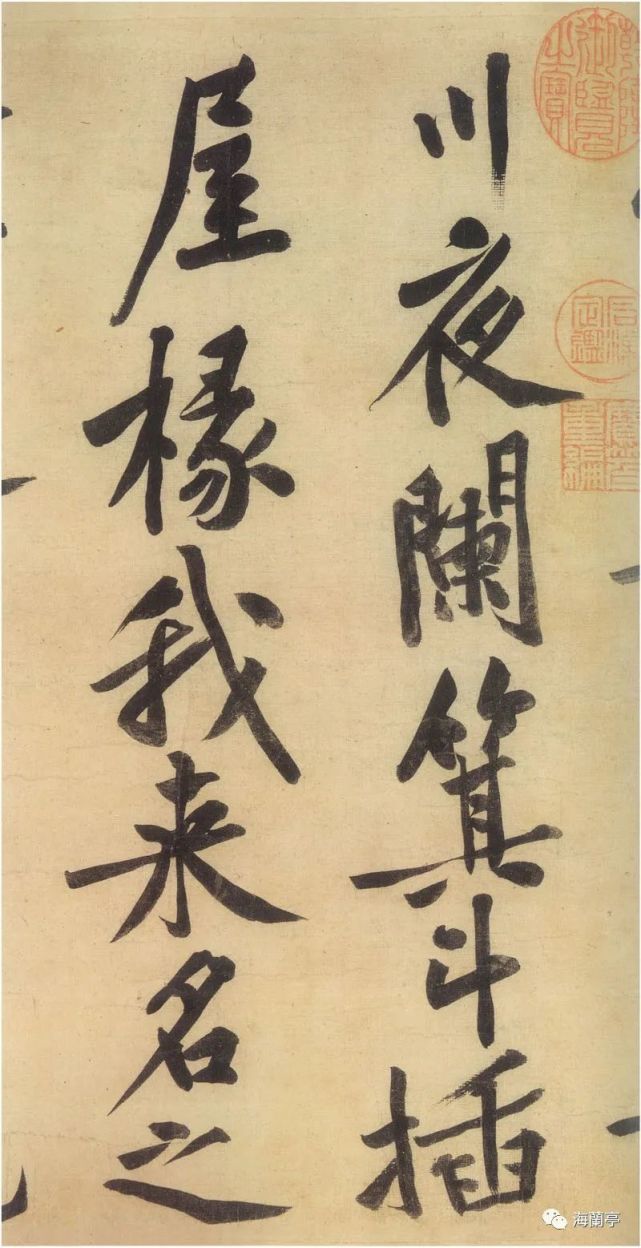 乾隆御覽之寶
石渠定鑑
寶笈重編
川夜闌箕斗插
屋椽我来名之
海蘭亭